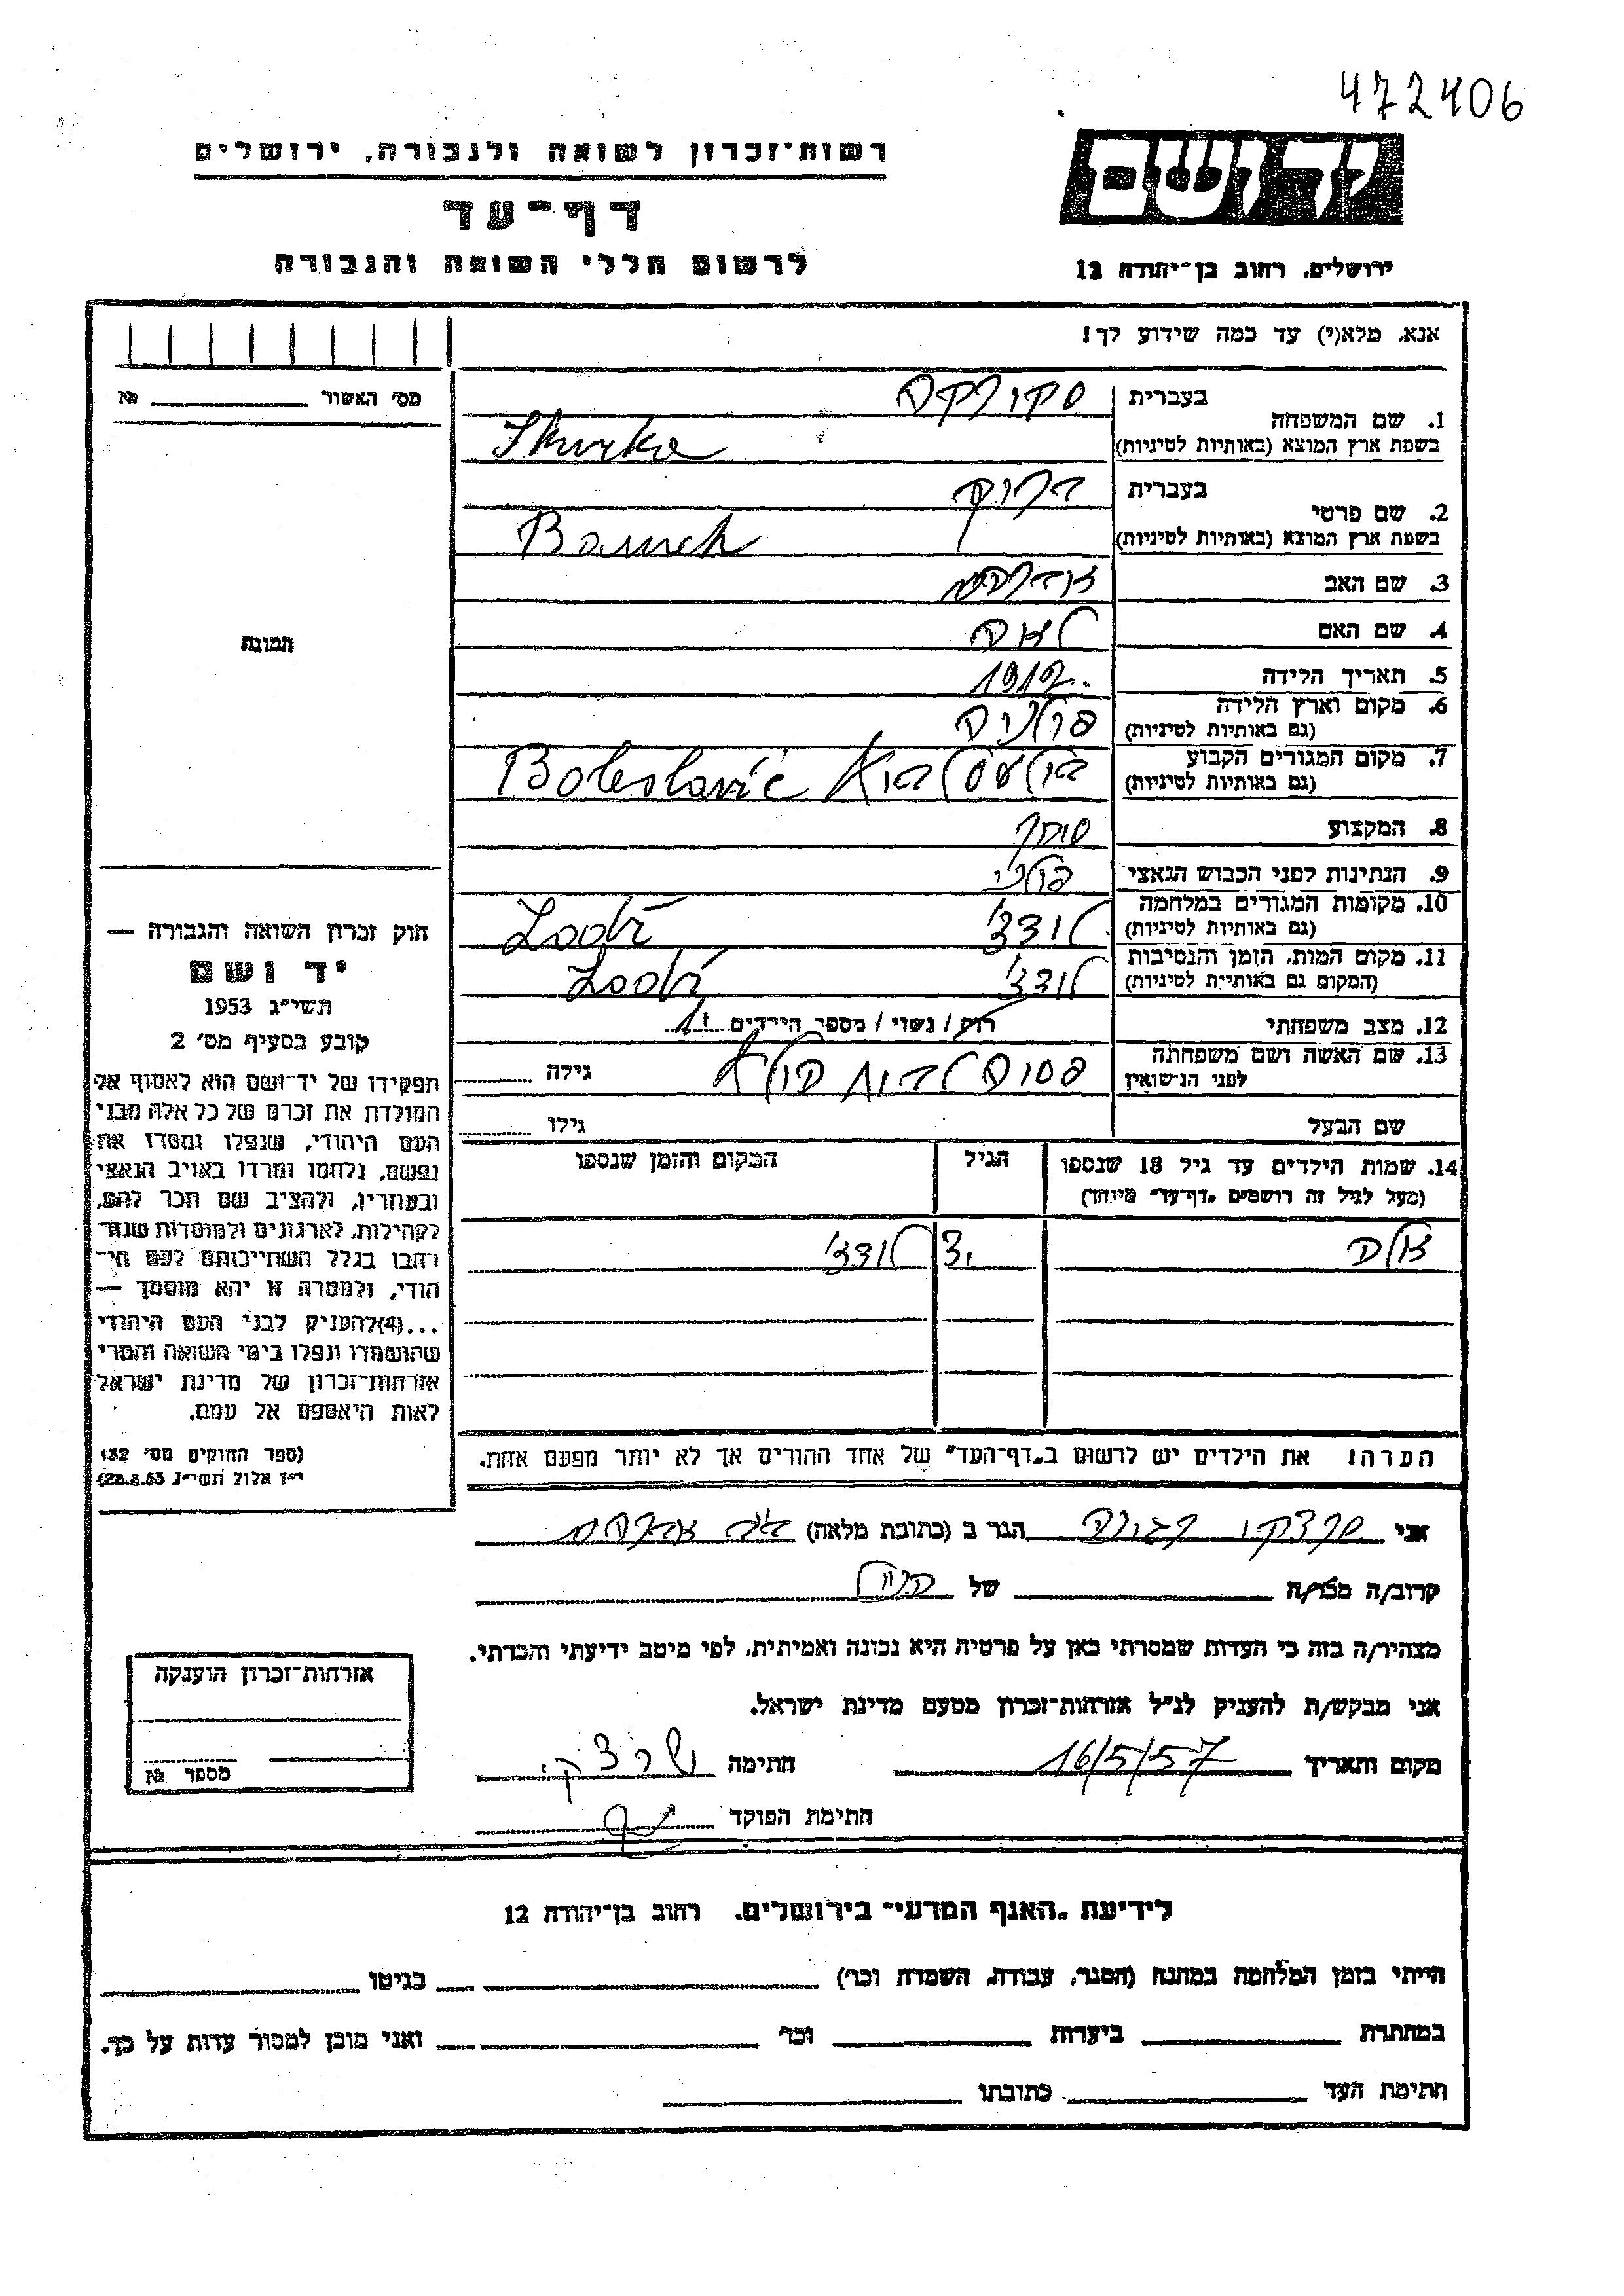 472406
רשות־זכרון לשואה ולגבורה, ירושלים
יד ושם
דף־עד
לרשום חללי השואה והגבורה
ירושלים, רחוב בן־יהודה 12
אנא, מלא(י) עד כמה שידוע לך!
מס׳ האשור № 
1. שם המשפחה
בעברית סקורקה
בשפת ארץ המוצא (באותיות לטיניות) Skurka
2. שם פרטי
בעברית ברוך
בשפת ארץ המוצא (באותיות לטיניות) Baruch
3. שם האב אברהם
4. שם האם לאה
5. תאריך הלידה 1912
6. מקום וארץ הלידה
(גם באותיות לטיניות) פולניה
7. מקום המגורים הקבוע
(גם באותיות לטיניות) Boleslavić
8. המקצוע סוחר
9. הנתינות לפני הכבוש הנאצי פולני
10. מקומות המגורים במלחמה
(גם באותיות לטיניות) לודז׳ Lodź
11. מקום המות, הזמן והנסיבות
(המקום גם באותיות לטיניות) לודז׳ Lodź
12. מצב משפחתי רוק / נשוי / מספר הילדים 1
13. שם האשה ושם משפחתה
לפני הנשואין גילה
שם הבעל גילו
14. שמות הילדים עד גיל 18 שנספו
(מעל לגיל זה רושמים "דף־עד" מיוחד)
הגיל
המקום והזמן שנספו
3 לודז׳
הערה: את הילדים יש לרשום ב"דף־העד" של אחד ההורים אך לא יותר מפעם אחת.
תמונה
חוק זכרון השואה והגבורה —
יד ושם
תשי״ג 1953
קובע בסעיף מס׳ 2
תפקידו של יד־ושם הוא לאסוף אל
המולדת את זכרם של כל אלה מבני
העם היהודי, שנפלו ומסרו את
נפשם, נלחמו ומרדו באויב הנאצי
ובעוזריו, ולהציב שם וזכר להם,
לקהילות, לארגונים ולמוסדות שנח־
רבו בגלל השתייכותם לעם הי־
הודי, ולמטרה זו יהא מוסמך —
...(4) להעניק לבני העם היהודי
שהושמדו ונפלו בימי השואה והמרי
אזרחות־זכרון של מדינת ישראל
לאות היאספם אל עמם.
(ספר החוקים מס׳ 132
י״ז אלול תשי״ג 28.8.53)
אני הגר ב (כתובת מלאה)
קרוב/ה מכר/ה של
מצהיר/ה בזה כי העדות שמסרתי כאן על פרטיה היא נכונה ואמיתית, לפי מיטב ידיעתי והכרתי.
אני מבקש/ת להעניק לנ״ל אזרחות־זכרון מטעם מדינת ישראל.
מקום ותאריך 16/5/57 חתימה
חתימת הפוקד
אזרחות־זכרון הוענקה
מספר №
לידיעת "האגף המדעי" בירושלים, רחוב בן־יהודה 12
הייתי בזמן המלחמה במחנה (הסגר, עבודה, השמדה וכר׳) בגיטו
במחתרת ביערות וכר׳ ואני מוכן למסור עדות על כך.
חתימת העד כתובתו